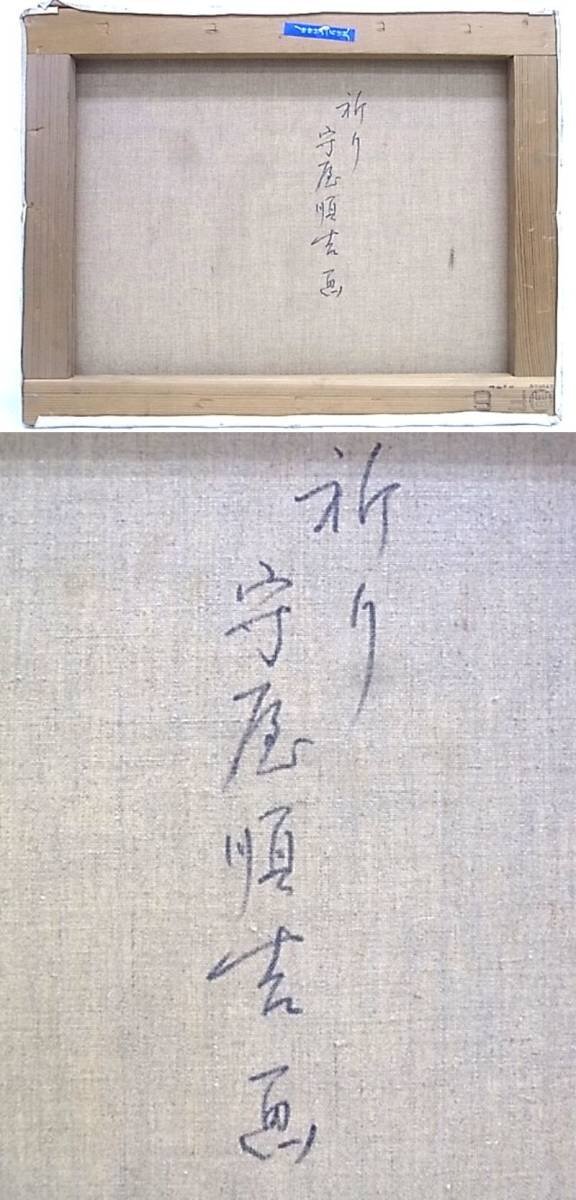 祈り
守屋順吉画
祈り
守屋順吉画